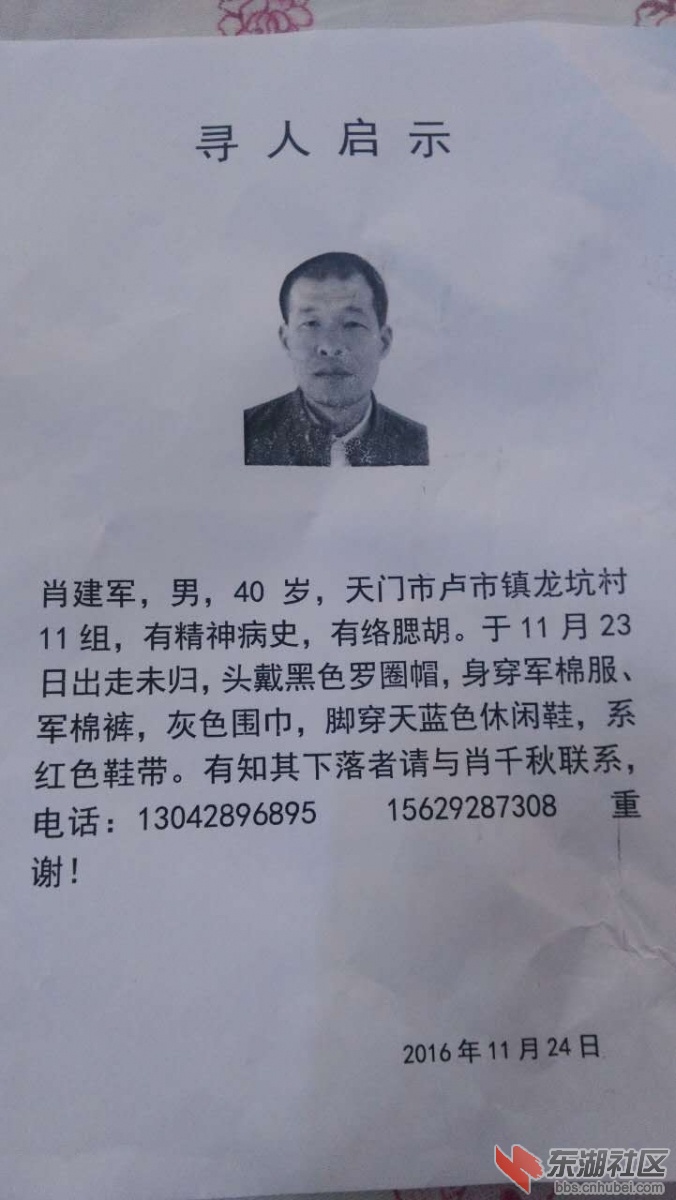 寻人启示
肖建军，男，40 岁，天门市卢市镇龙坑村
11 组，有精神病史，有络腮胡。于 11 月 23
日出走未归，头戴黑色罗圈帽，身穿军棉服、
军棉裤，灰色围巾，脚穿天蓝色休闲鞋，系
红色鞋带。有知其下落者请与肖千秋联系，
电话：13042896895 15629287308 重
谢！
2016 年 11 月 24 日
东湖社区
bbs.cnhubei.com